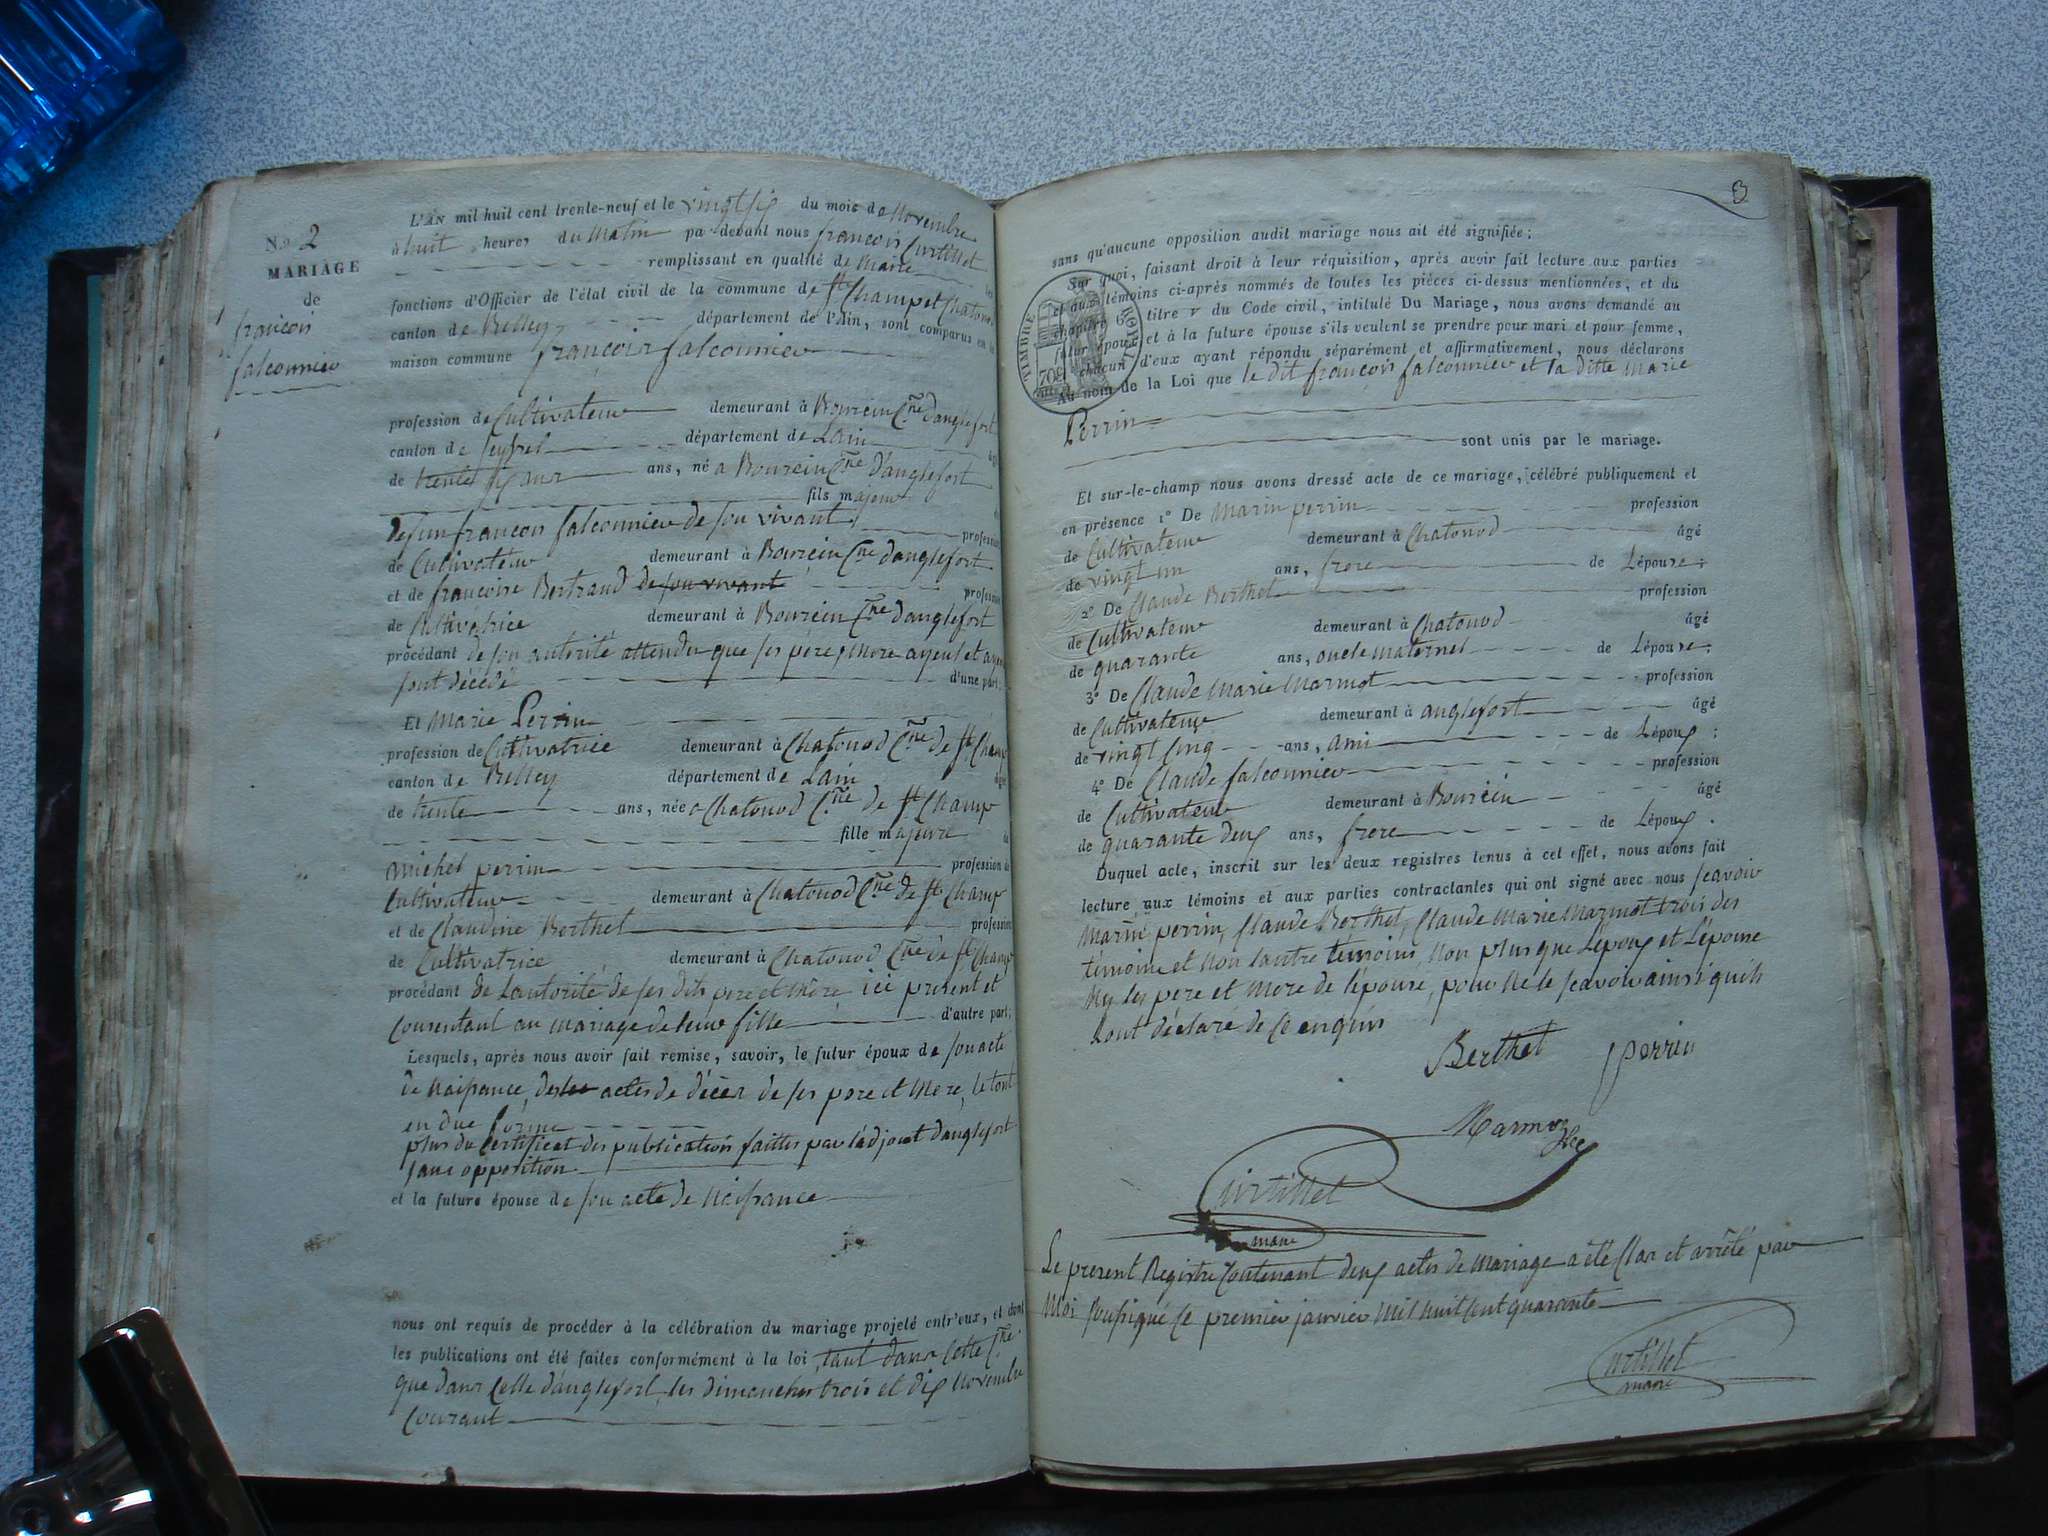 No 2
MARIAGE
de
françois
falconnier
L'AN mil huit cent trente-neuf et le vingt six du mois de Novembre
à huit heures du Matin par devant nous françois Curtillet
remplissant en qualité de Maire les
fonctions d'Officier de l'état civil de la commune de St Champ et Chatonod
canton de Belley département de l'Ain, sont comparus en la
maison commune françois falconnier
profession de Cultivateur demeurant à Bourcin Cne d'anglefort
canton de Seyssel département de Lain âgé
de trente six ans ans, né à Bourcin Cne d'anglefort
fils majeur de
defunt françois falconnier de son vivant profession
de Cultivateur demeurant à Bourcin Cne danglefort
et de françoise Bertrand de son vivant profession
de Cultivatrice demeurant à Bourcin Cne danglefort
procédant de son autorité attendu que ses père, mere ayeul et ayeule
sont décédé d'une part;
Et Marie Perrin
profession de Cultivatrice demeurant à Chatonod Cne de St Champ
canton de Belley département de Lain âgée
de trente ans, née a Chatonod Cne de St Champ
fille majeure de
michel perrin profession de
Cultivateur demeurant à Chatonod Cne de St Champ
et de Claudine Berthet profession
de Cultivatrice demeurant à Chatonod Cne de St Champ
procédant de Lautorité de ses dits pere et Mère ici present et
Consentant au mariage de leur fille d'autre part;
Lesquels, après nous avoir fait remise, savoir, le futur époux de son acte
de Naissance, des les actes de décès de ses pere et Mere, le tout
en due forme
plus du Certificat des publications faittes par ladjoint danglefort
sans opposition
et la future épouse de son acte de Naissance
nous ont requis de procéder à la célébration du mariage projeté entr'eux, et dont
les publications ont été faites conformément à la loi, tant dans Cette Cne
que dans Celle danglefort, les dimanches trois et dix Novembre
Courant
3
sans qu'aucune opposition audit mariage nous ait été signifiée;
Sur quoi, faisant droit à leur réquisition, après avoir fait lecture aux parties
et aux témoins ci-après nommés de toutes les pièces ci-dessus mentionnées, et du
chapitre 6 titre v du Code civil, intitulé Du Mariage, nous avons demandé au
futur époux et à la future épouse s'ils veulent se prendre pour mari et pour femme,
chacun d'eux ayant répondu séparément et affirmativement, nous déclarons
Au nom de la Loi que le dit françois falconnier et la ditte Marie
Perrin
sont unis par le mariage.
TIMBRE ROYAL
Et sur-le-champ nous avons dressé acte de ce mariage, célébré publiquement et
en présence 1º De Marin perrin profession
de Cultivateur demeurant à Chatonod âgé
de vingt un ans, frere de Lépouse;
2º De Claude Berthet profession
de Cultivateur demeurant à Chatonod âgé
de quarante ans, oncle maternel de Lépouse;
3º De Claude Marie Marmot profession
de Cultivateur demeurant à anglefort âgé
de vingt Cinq ans, ami de Lépoux;
4º De Claude falconnier profession
de Cultivateur demeurant à Bourcin âgé
de quarante deux ans, frere de Lépoux.
Duquel acte, inscrit sur les deux registres tenus à cet effet, nous avons fait
lecture aux témoins et aux parties contractantes qui ont signé avec nous Scavoir
Marin perrin, Claude Berthet, Claude Marie Marmot trois des
témoins et Non lautre témoins, Non plus que Lépoux et Lépouse
Ny les pere et Mere de lépouse, pour Ne le Scavoir ainsi quils
Lont déclaré de Ce enquis
Berthet perrin
Marmot
Curtillet
maire
Le present Registre Contenant deux actes de Mariage a été Clos et arrêté par
Moi Soussigné le premier janvier Mil huit Cent quarante
Curtillet
maire